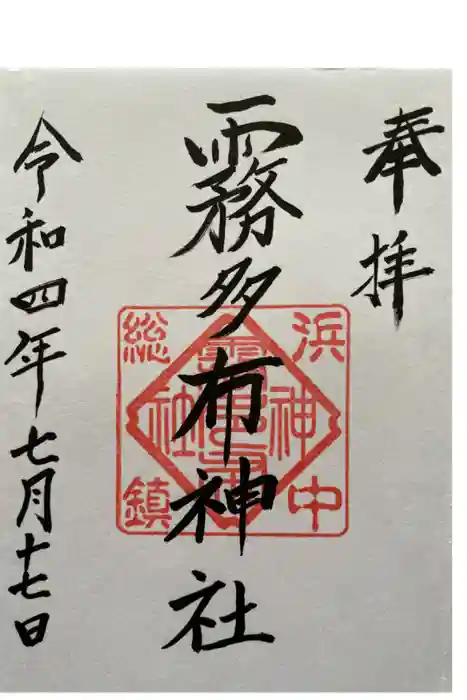 奉拝
霧多布神社
浜中
総鎮
神
社
令和四年七月十七日